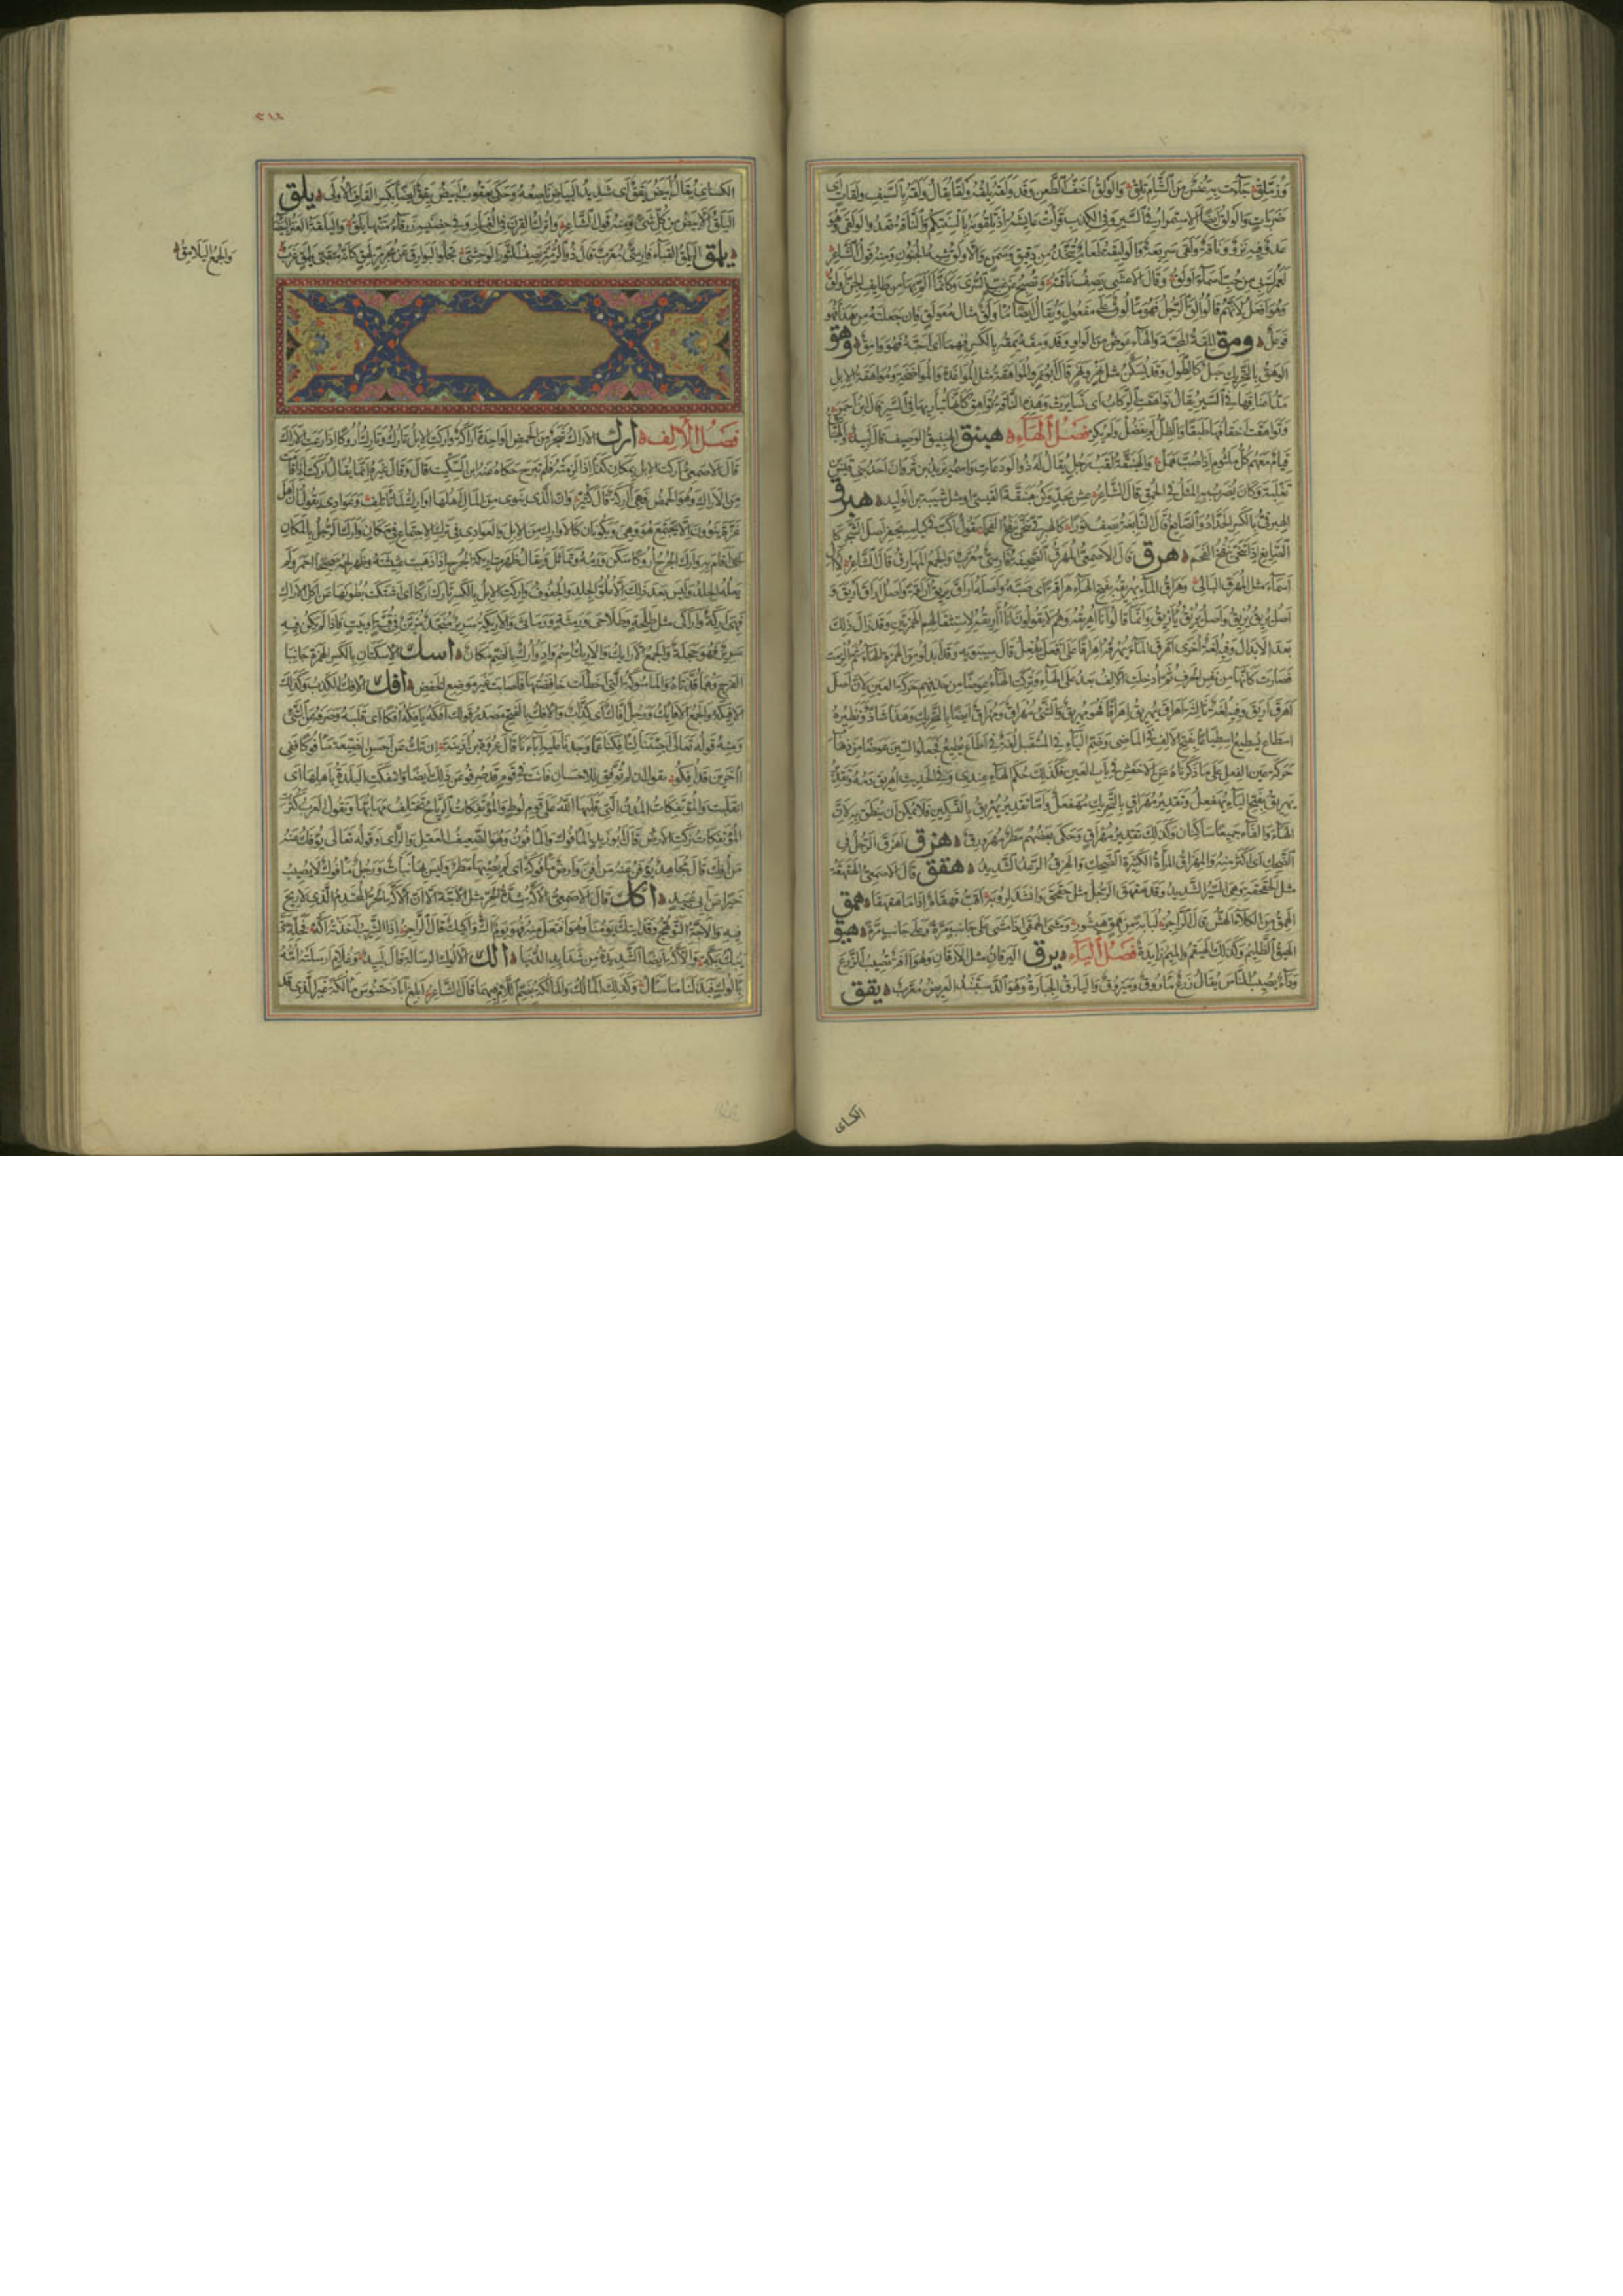 وَزُمَّلِقِ جَاءَتْ بِهِ عَنْسٌ مِنَ الشَّأْمِ تَلِقْ وَالوَلْقُ اَخَفُّ الطَّعنِ وَقَد وَلَقَهُ يَلِقُهُ وَلْقًا يُقَالُ وَلَقَهُ بِالسَّيفِ وَلَقَاتٍ اَى
ضَرَبَاتٍ وَالوَلْقُ اَيضًا الاِستِمرَارُ فِى السَّيرِ وَفِى الكَذِبِ
لَعَمْرُكَ بِى مِن حُبِّ اَسمَاءَ اَولَقُ وَقَالَ الاَعشَى يَصِفُ نَاقَتَهُ وَتُصبِحُ عَن غِبِّ السُّرَى وَكَاَنَّمَا اَلَمَّ بِهَا مِن طَائِفِ الجِنِّ اَولَقُ
وَهُوَ اَفعَلُ لِاَنَّهُم قَالُوا اُلِقَ الرَّجُلُ فَهُوَ مَألُوقٌ عَلَى مَفعُولٍ وَيُقَالُ اَيضًا مُؤَولَقٌ مِثَالُ مُعَولَقٍ فَاِن جَعَلتَهُ مِن هَذَا فَهُوَ
فَوعَلٌ ومق المِقَةُ المَحَبَّةُ وَالهَاءُ عِوَضٌ مِنَ الوَاوِ وَقَد وَمِقَهُ يَمِقُهُ بِالكَسرِ فِيهِمَا اَى اَحَبَّهُ فَهُوَ وَامِقٌ وهق
الوَهَقُ بِالتَّحرِيكِ حَبلٌ كَالطِّوَلِ وَقَد يُسَكَّنُ مِثلُ نَهْرٍ وَنَهَرٍ قَالَ اَبُو عَمرٍو المُوَاهَقَةُ مِثلُ المُوَاغَدَةِ وَالمُوَاضَخَةِ وَمُوَاهَقَةُ الاِبِلِ
مَدُّ اَعنَاقِهَا فِى السَّيرِ يُقَالُ تَوَاهَقَتِ الرِّكَابُ اَى تَسَايَرَت وَهَذِهِ النَّاقَةُ تُوَاهِقُ
وَتَوَاهَقَت اَخفَافُهَا طَبَقًا وَالظِّلُّ لَم يَفضُل وَلَم يُكرِ فَصْلُ الْهَاءِ هبنق الهِبنِيقُ الوَصِيفُ قَالَ لَبِيدٌ
قِيَامٌ مَعَهُم كُلُّ مَلثُومٍ اِذَا صُبَّ هَمَل وَالهَبَنَّقَةُ لَقَبُ رَجُلٍ يُقَالُ لَهُ ذُو الوَدَعَاتِ وَاسمُهُ يَزِيدُ بنُ ثَروَانَ اَحَدُ بَنِى قَيسِ بنِ
ثَعلَبَةَ وَكَانَ يُضرَبُ بِهِ المَثَلُ فِى الحُمقِ قَالَ الشَّاعِرُ عِش بِجَدٍّ وَكُن هَبَنَّقَةَ القَيسِىَّ اَو مِثلَ شَيبَةَ بنِ الوَلِيدِ هبرق
الهِبرِقِىُّ بِالكَسرِ الحَدَّادُ وَالصَّائِغُ قَالَ النَّابِغَةُ يَصِفُ ثَورًا كَالهِبرِقِىِّ تَنَحَّى يَنفُخُ الفَحَمَا
الصَّائِغُ اِذَا تَنَحَّى يَنفُخُ الفَحَمَ هرق قَالَ الاَصمَعِىُّ المُهرَقُ الصَّحِيفَةُ فَارِسِىٌّ مُعَرَّبٌ وَالجَمعُ المَهَارِقُ قَالَ الشَّاعِرُ
اَسمَاءَ مِثلُ المُهرَقِ البَالِى وَهَرَاقَ المَاءَ يُهَرِيقُهُ بِفَتحِ الهَاءِ هِرَاقَةً اَى صَبَّهُ وَاَصلُهُ اَرَاقَ يُرِيقُ اِرَاقَةً وَاَصلُ اَرَاقَ اَريَقَ وَ
اَصلُ يُرِيقُ يُريِقُ وَاَصلُ يُريِقُ يُاَريِقُ وَاِنَّمَا قَالُوا اَنَا اُهَرِيقُهُ وَهُم لَا يَقُولُونَ اَنَا اُاَرِيقُهُ لِاستِثقَالِهِمُ الهَمزَتَينِ وَقَد زَالَ ذَلِكَ
بَعدَ الاِبدَالِ وَفِيهِ لُغَةٌ اُخرَى اَهرَقَ المَاءَ يُهرِقُهُ اِهرَاقًا عَلَى اَفعَلَ يُفعِلُ قَالَ سِيبَوَيهِ وَقَد اَبدَلُوا مِنَ الهَمزَةِ الهَاءَ ثُمَّ اُلزِمَت
فَصَارَت كَاَنَّهَا مِن نَفسِ الحَرفِ ثُمَّ اُدخِلَتِ الاَلِفُ بَعدُ عَلَى الهَاءِ وَتُرِكَتِ الهَاءُ عِوَضًا مِن حَذفِهِم حَرَكَةَ العَينِ لِاَنَّ اَصلَ
اَهرَقَ اَريَقَ وَفِيهِ لُغَةٌ ثَالِثَةٌ اَهرَاقَ يُهرِيقُ اِهرِيَاقًا فَهُوَ مُهرِيقٌ وَالشَّىءُ مُهرَاقٌ وَمُهَرَاقٌ اَيضًا بِالتَّحرِيكِ وَهَذَا شَاذٌّ وَنَظِيرُهُ
اَسطَاعَ يُسطِيعُ اِسطِيَاعًا بِفَتحِ الاَلِفِ فِى المَاضِى وَضَمِّ اليَاءِ فِى المُستَقبَلِ لُغَةٌ فِى اَطَاعَ يُطِيعُ فَجَعَلُوا السِّينَ عِوَضًا مِن ذَهَابِ
حَرَكَةِ عَينِ الفِعلِ عَلَى مَا ذَكَرنَاهُ عَنِ الاَخفَشِ فِى بَابِ العَينِ فَكَذَلِكَ حُكمُ الهَاءِ عِندِى وَفِى الحَدِيثِ اُهرِيقَ دَمُهُ وَتَقدِيرُ
يُهَرِيقُ بِفَتحِ الهَاءِ يُهَفعِلُ وَتَقدِيرُ مُهَرَاقٍ بِالتَّحرِيكِ مُهَفعَلٌ وَاَمَّا تَقدِيرُ يُهرِيقُ بِالتَّسكِينِ فَلَا يُمكِنُ اَن يُنطَقَ بِهِ لِاَنَّ
الهَاءَ وَالفَاءَ جَمِيعًا سَاكِنَانِ وَكَذَلِكَ تَقدِيرُ مُهرَاقٍ وَحَكَى بَعضُهُم مَطَرٌ مُهرَورِقٌ هزق اَهزَقَ الرَّجُلُ فِى
الضَّحِكِ اَى اَكثَرَ مِنهُ وَالمِهزَاقُ المَرأَةُ الكَثِيرَةُ الضَّحِكِ وَالهَزِقُ الرَّعدُ الشَّدِيدُ هقق قَالَ الاَصمَعِىُّ الهَقهَقَةُ
مِثلُ الحَقحَقَةِ وَهِىَ السَّيرُ الشَّدِيدُ وَقَد هَقهَقَ الرَّجُلُ مِثلُ حَقحَقَ وَاَنشَدَ لِرُؤبَةَ همق
الهَمِقُ مِنَ الكَلَاِ الهَشُّ قَالَ الرَّاجِزُ لُبَايَةً مِن هَمِقٍ هَيشُورِ وَمَشَى الهِمِقَّى اِذَا مَشَى عَلَى جَانِبٍ مَرَّةً وَعَلَى جَانِبٍ مَرَّةً هيق
الهَيقُ الظَّلِيمُ وَكَذَلِكَ الهَيقَمُ وَالمِيمُ زَائِدَةٌ فَصْلُ الْيَاءِ يرق اليَرَقَانُ مِثلُ الاَرَقَانِ وَهُوَ اٰفَةٌ تُصِيبُ الزَّرعَ
وَدَاءٌ يُصِيبُ النَّاسَ يُقَالُ زَرعٌ مَأرُوقٌ وَمَيرُوقٌ وَاليَارَقُ الجِبَارَةُ وَهُوَ الدَّستَبَنْدُ العَرِيضُ مُعَرَّبٌ يقق
الكسَاى
٣١٤
الكِسَاىُ يُقَالُ اَبيَضُ يَقَقٌ اَى شَدِيدُ البَيَاضِ نَاصِعُهُ وَحَكَى يَعقُوبُ اَبيَضُ يَقِقٌ اَيضًا بِكَسرِ القَافِ الاُولَى يلق
اليَلَقُ الاَبيَضُ مِن كُلِّ شَىءٍ وَمِنهُ قَولُ الشَّاعِرِ وَاَترُكُ القِرنَ فِى الغُبَارِ وَفِى حِضنَيهِ زَرقَاءُ مَتنُهَا يَلَقُ وَاليَلَقَةُ العَنزُ البَيضَاءُ
يلمق اليَلمَقُ القَبَاءُ فَارِسِىٌّ مُعَرَّبٌ قَالَ ذُو الرُّمَّةِ يَصِفُ الثَّورَ الوَحشِىَّ تَجلُو البَوَارِقُ عَن مُجرَمِّزٍ لَهِقٍ كَاَنَّهُ مُتَقَبِّى يَلمَقٍ عَزَبُ
وَالجَمعُ اليَلَامِقُ
فَصْلُ الْاَلِفِ ارك الاَرَاكُ شَجَرٌ مِنَ الحَمضِ الوَاحِدَةُ اَرَاكَةٌ وَاَرَكَتِ الاِبِلُ تَأرُكُ وَتَأرِكُ اُرُوكًا اِذَا رَعَتِ الاَرَاكَ
قَالَ الاَصمَعِىُّ اَرَكَتِ الاِبِلُ بِمَكَانِ كَذَا اِذَا لَزِمَتهُ فَلَم تَبرَح حَكَاهُ عَنهُ ابنُ السِّكِّيتِ قَالَ وَقَالَ غَيرُهُ اِنَّمَا يُقَالُ اَرَكَت اِذَا اَقَامَت
فِى الاَرَاكِ وَهُوَ الحَمضُ فَهِىَ اَرِكَةٌ قَالَ كُثَيِّرٌ وَاِنَّ الَّذِى يَنوِى مِنَ المَالِ اَهلُهَا اَوَارِكُ لَمَّا تَأتَلِف وَعَوَادِى يَقُولُ اِنَّ اَهلَ
عَزَّةَ يَنوُونَ اَلَّا يَجتَمِعَ هُوَ وَهِىَ وَيَكُونَانِ كَالاَوَارِكِ مِنَ الاِبِلِ وَالعَوَادِى فِى تَركِ الاِجتِمَاعِ فِى مَكَانٍ وَاَرَكَ الرَّجُلُ بِالمَكَانِ
اَى اَقَامَ بِهِ وَاَرَكَ الجُرحُ اُرُوكًا سَكَنَ وَرَمُهُ وَتَمَاثَلَ وَيُقَالُ ظَهَرَت اَرِيكَةُ الجُرحِ اِذَا ذَهَبَت غَثِيثَتُهُ وَظَهَرَ لَحمُهُ صَحِيحًا اَحمَرَ وَلَم
يَعلُهُ الجِلدُ وَلَيسَ بَعدَ ذَلِكَ اِلَّا عُلُوُّ الجِلدِ وَالجُفُوفُ وَاَرِكَتِ الاِبِلُ بِالكَسرِ تَأرَكُ اَرَكًا اِذَا اشتَكَت بُطُونَهَا عَن اَكلِ الاَرَاكِ
فَهِىَ اَرِكَةٌ وَاَرَاكَى مِثلُ طَلِحَةٍ وَطَلَاحَى وَرَمِثَةٍ وَرَمَاثَى وَالاَرِيكَةُ سَرِيرٌ مُنَجَّدٌ مُزَيَّنٌ فِى قُبَّةٍ اَو بَيتٍ فَاِذَا لَم يَكُن فِيهِ
سَرِيرٌ فَهُوَ حَجَلَةٌ وَالجَمعُ الاَرَائِكُ وَالاَرِيكُ اسمُ وَادٍ وَاُرُكٌ بِالضَّمِّ مَكَانٌ اسك الاِسكَتَانِ بِالكَسرِ الهَمزَةِ جَانِبَا
الفَرجِ وَهُمَا قُذَّتَاهُ وَالمَأسُوكَةُ الَّتِى اَخطَأَت خَافِضَتُهَا فَاَصَابَت غَيرَ مَوضِعِ الخَفضِ افك الاِفكُ الكَذِبُ وَكَذَلِكَ
الاَفِيكَةُ وَالجَمعُ الاَفَائِكُ وَرَجُلٌ اَفَّاكٌ اَى كَذَّابٌ وَالاَفكُ بِالفَتحِ مَصدَرُ قَولِكَ اَفَكَهُ يَأفِكُهُ اَفكًا اَى قَلَبَهُ وَصَرَفَهُ عَنِ الشَّىءِ
وَمِنهُ قَولُهُ تَعَالَى اَجِئتَنَا لِتَأفِكَنَا عَمَّا وَجَدنَا عَلَيهِ اٰبَاءَنَا قَالَ عُروَةُ بنُ اُذَينَةَ اِن تَكُ عَن اَحسَنِ الصَّنِيعَةِ مَأفُوكًا فَفِى
اٰخَرِينَ قَد اُفِكُوا يَقُولُ اِن لَم تُوَفَّق لِلاِحسَانِ فَاَنتَ فِى قَومٍ قَد صُرِفُوا عَن ذَلِكَ اَيضًا وَائتَفَكَتِ البَلدَةُ بِاَهلِهَا اَى
انقَلَبَت وَالمُؤتَفِكَاتُ المُدُنُ الَّتِى قَلَبَهَا اللهُ عَلَى قَومِ لُوطٍ وَالمُؤتَفِكَاتُ الرِّيَاحُ تَختَلِفُ مَهَابُّهَا وَتَقُولُ العَرَبُ اِذَا كَثُرَتِ
المُؤتَفِكَاتُ زَكَتِ الاَرضُ قَالَ اَبُو زَيدٍ المَأفُوكُ وَالمَأفُونُ وَهُوَ الضَّعِيفُ العَقلِ وَالرَّأىِ وَقَولُهُ تَعَالَى يُؤفَكُ عَنهُ
مَن اُفِكَ قَالَ مُجَاهِدٌ يُؤفَنُ عَنهُ مَن اُفِنَ وَاَرضٌ مَأفُوكَةٌ اَى لَم يُصِبهَا مَطَرٌ وَلَيسَ بِهَا نَبَاتٌ وَرَجُلٌ مَأفُوكٌ لَا يُصِيبُ
خَيرًا عَن اَبِى عُبَيدٍ اكك قَالَ الاَصمَعِىُّ الاَكَّةُ شِدَّةُ الحَرِّ مِثلُ الاَجَّةِ اِلَّا اَنَّ الاَكَّةَ الحَرُّ المُحتَدِمُ الَّذِى لَا رِيحَ
فِيهِ وَالاَجَّةَ التَّوَهُّجُ وَقَدِ ائتَكَّ يَومُنَا وَهُوَ افتَعَلَ مِنهُ فَهُوَ يَومٌ اَكٌّ وَاَكِيكٌ قَالَ الرَّاجِزُ اِذَا الشَّرِيبُ اَخَذَتهُ اَكَّه فَخَلِّهِ حَتَّى
يَبُكَّ بَكَّه وَالاَكَّةُ اَيضًا الشَّدِيدَةُ مِن شَدَائِدِ الدُّنيَا الك الاَلُوكُ الرِّسَالَةُ قَالَ لَبِيدٌ وَغُلَامٍ اَرسَلَتهُ اُمُّهُ
بِاَلُوكٍ فَبَذَلنَا مَا سَاَل وَكَذَلِكَ المَألُكُ وَالمَألُكَةُ بِضَمِّ اللَّامِ فِيهِمَا قَالَ الشَّاعِرُ اَبلِغ اَبَا دَختَنُوسَ مَألُكَةً غَيرُ الَّذِى قَد